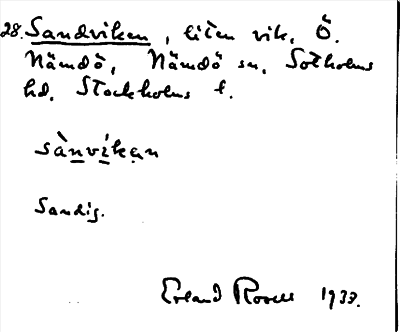 28. Sandviken, liten vik, Ö.
Nämdö, Nämdö sn, Sotholms
hd, Stockholms l.
sànvikan
Sandig.
Erland Rosell 1933.